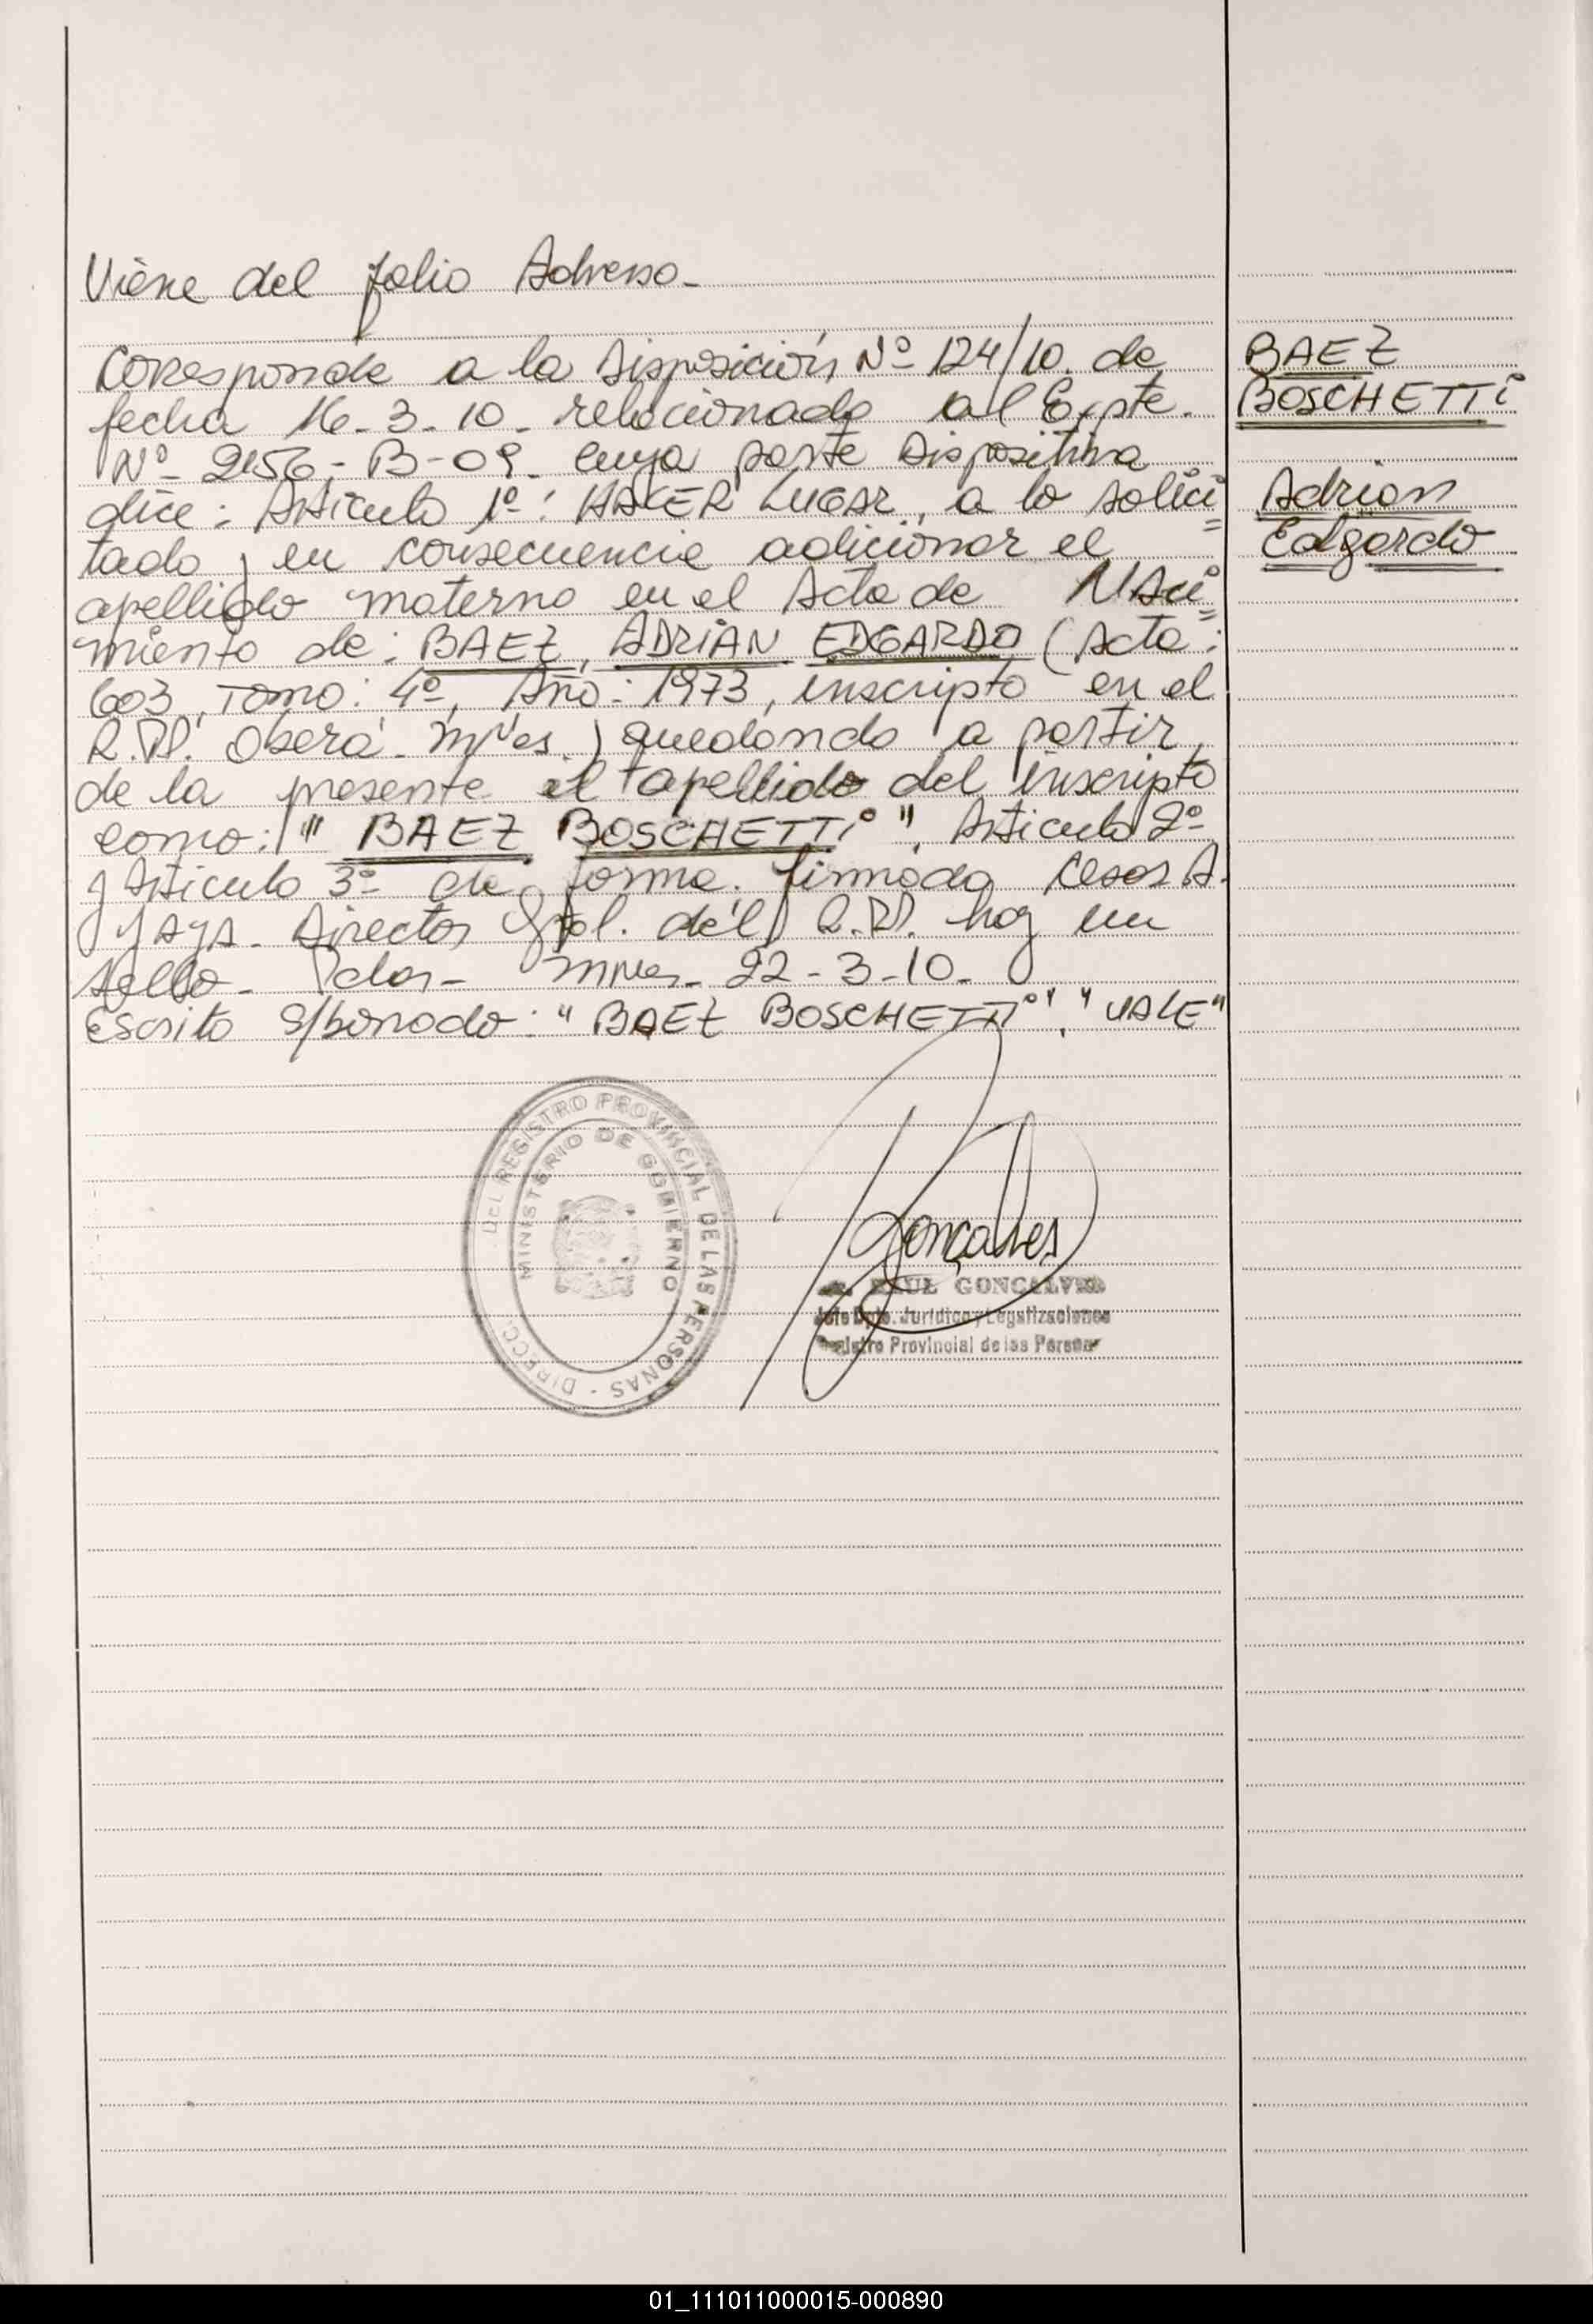 Viene del folio Adverso -
Corresponde a la Disposición Nº 124/10. de
fecha 16-3-10- relacionado al Expte.
Nº 2156-B-09- cuya parte Dispositiva
dice: Articulo 1º: HACER LUGAR, a lo solici=
tado y en consecuencia adicionar el
apellido materno en el Acta de Naci=
miento de: BAEZ, ADRIAN EDGARDO (Acta:
603, Tomo: 4º, Año: 1973, inscripto en el
R.P.P. Oberá - Mnes.) quedando a partir
de la presente el apellido del inscripto
como: " BAEZ BOSCHETTi ", Articulo 2º
y Articulo 3º de forma. firmado Cesar A.
Director Gral. del R.P.P. hay un
sello - Pdas - Mnes - 22-3-10-
Escrito s/borrado: " BAEZ BOSCHETTi", "VALE"
BAEZ
BOSCHETTi
Adrian
Edgardo
DIRECC. DEL REGISTRO PROVINCIAL DE LAS PERSONAS -
MINISTERIO DE GOBIERNO
Gonçalves
RAUL GONCALVES
Jefe Dpto. Jurídico y Legalizaciones
Registro Provincial de las Personas
01_111011000015-000890